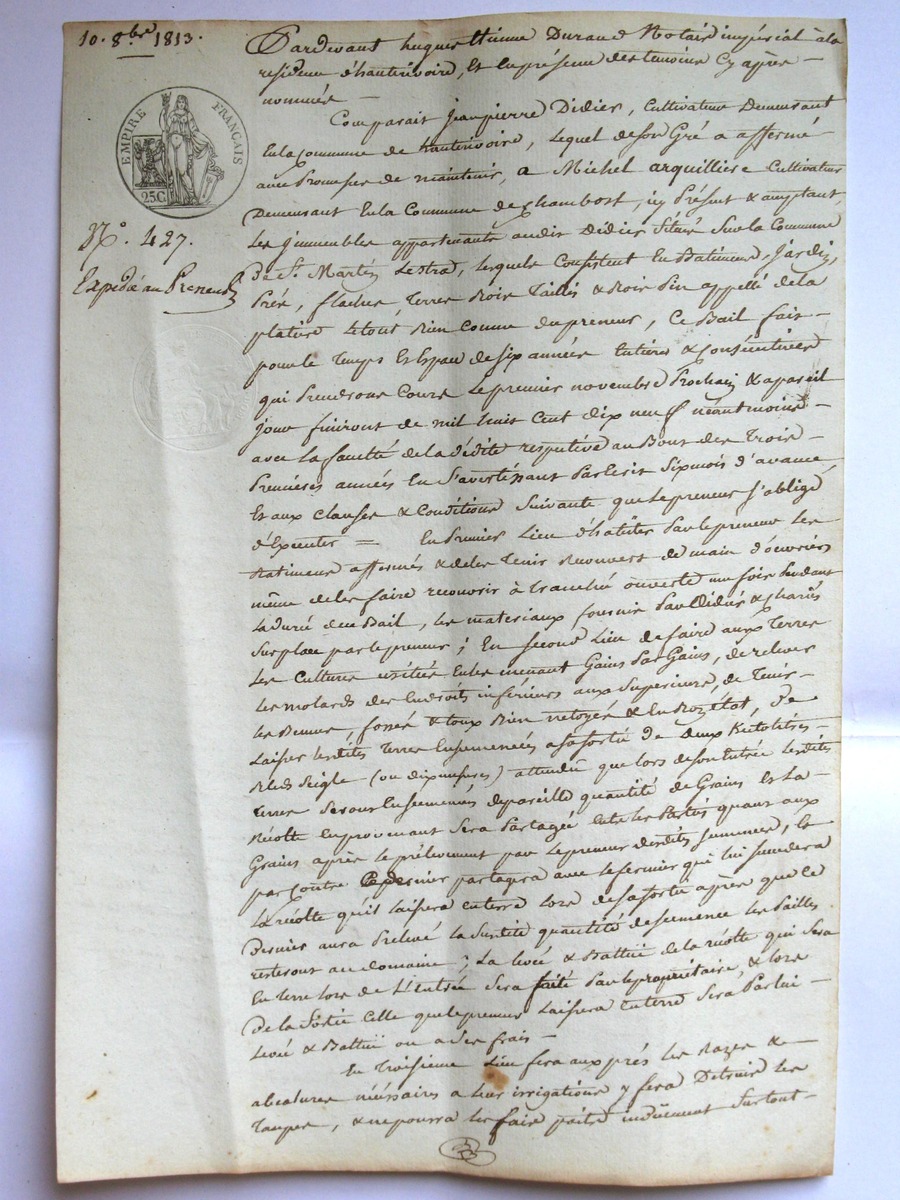 10. 8.bre 1813.
EMPIRE FRANÇAIS
25C
N.º 427.
Expediée au Preneur
Pardevant hugues Etienne Durand Notaire impérial à la
residence d'hauterivoire, Et en présence des temoins Cy après
nommés
Comparait jean pierre Didier, Cultivateur Demeurant
En la Commune de hauterivoire, lequel de son Gré a affermé
avec Promesses de maintenir, a Michel arquilliere Cultivateur
Demeurant En la Commune de Chambost, icy Présent & acceptant,
Les jmmeubles appartenants audit Didier Situés Sur la Commune
De St. Martin Lestra, lesquels Consistent En Batiments, Jardin,
Prés, flaches Terres Bois Taillis & Bois Pin appellé de la
platiere Letout Bien Connu du preneur, Ce Bail fait
pour le Temps Et Espace de six années Entieres & Consécutives
qui Prendront Cours Le premier novembre Prochain & a pareil
jour finiront de mil huit Cent dix neuf néantmoins
avec la faculté de la dédite respective au Bout des Trois
Premières années En S'avertissant Par Ecrit Six mois d'avance
Et aux Clauses & Conditions Suivante que Le preneur s'oblige
d'Executer = En Premier Lieu d'habiter Par Le preneur Les
Batiments affermés & de les Tenir Recouverts de main d'ouvriers
même de les faire recouvrir à tranché ouverte une fois Pendant
La durée du Bail, les materiaux fournis Par Didier & chariés
Sur place par le preneur; En second Lieu de faire aux Terres
Les Cultures usitées En les menant Gains Par Gains, de relever
Les molards des Endroits inférieurs aux Superieurs, de Tenir
les fossés & Bien netoyés & de
Laisser lesdites Terres Ensemencées a sa sortie de deux hectolitres
Bled Seigle (ou dix mesures) attendu que lors de son Entrée Lesdites
Terres Seront Ensemencées de pareille quantité de Grains Et La
Récolte En provenant Sera Partagée Entre les Parties quant aux
Grains après le prélevement par Le preneur desdites Semences, &
par Contre Ce dernier partagera avec le fermier qui lui succedera
La récolte qu'il laissera en terre lors de sa sortie après que Ce
Dernier aura Prelevé la Susdite quantité de semence Les Pailles
resteront au domaine; La levée & Battue de la récolte qui sera
En terre lors de L'entrée sera faite Par le propriétaire, & lors
De la Sortie Celle que le preneur Laissera En terre Sera Par lui
Levée & Battue ou a Ses frais
En Troisieme Lieu fera aux prés les Razes &
abcatures nécéssaires a Leur irrigation, y fera Detruire les
Taupes, & ne pourra les faire paitre induement Surtout